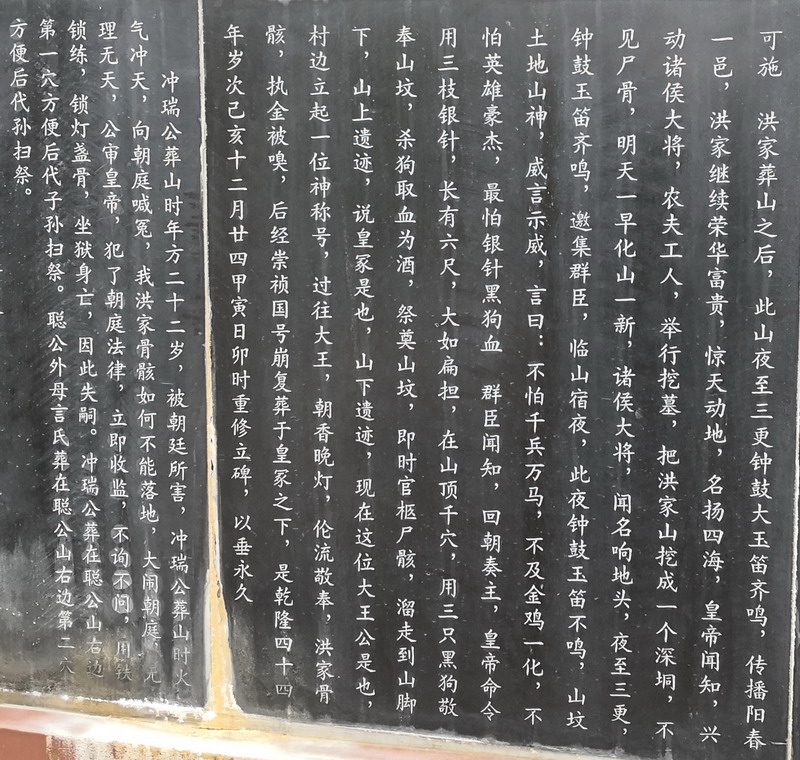 可施　洪家葬山之后，此山夜至三更钟鼓大玉笛齐鸣，传播阳春
一邑，洪家继续荣华富贵，惊天动地，名扬四海，皇帝闻知，兴
动诸侯大将，农夫工人，举行挖墓，把洪家山挖成一个深垌，不
见尸骨，明天一早化山一新，诸侯大将，闻名响地头，夜至三更，
钟鼓玉笛齐鸣，邀集群臣，临山宿夜，此夜钟鼓玉笛不鸣，山坟
土地山神，威言示威，言曰：不怕千兵万马，不及金鸡一化，不
怕英雄豪杰，最怕银针黑狗血　群臣闻知，回朝奏王，皇帝命令
用三枝银针，长有六尺，大如扁担，在山顶千穴，用三只黑狗敬
奉山坟，杀狗取血为酒，祭奠山坟，即时官柩尸骸，溜走到山脚
下，山上遗迹，说皇冢是也，山下遗迹，现在这位大王公是也，
村边立起一位神称号，过往大王，朝香晚灯，伦流敬奉，洪家骨
骸，执金被嗅，后经崇祯国号崩复葬于皇冢之下，是乾隆四十四
年岁次己亥十二月廿四甲寅日卯时重修立碑，以垂永久
冲瑞公葬山时年方二十二岁，被朝廷所害，冲瑞公葬山时火
气冲天，向朝庭喊冤，我洪家骨骸如何不能落地，大闹朝庭，无
理无天，公审皇帝，犯了朝庭法律，立即收监，不询不问，用铁
锁练，锁灯盏骨，坐狱身亡，因此失嗣。冲瑞公葬在聪公山右边
第一穴方便后代子孙扫祭。聪公外母言氏葬在聪公山右边第二穴
方便后代孙扫祭。